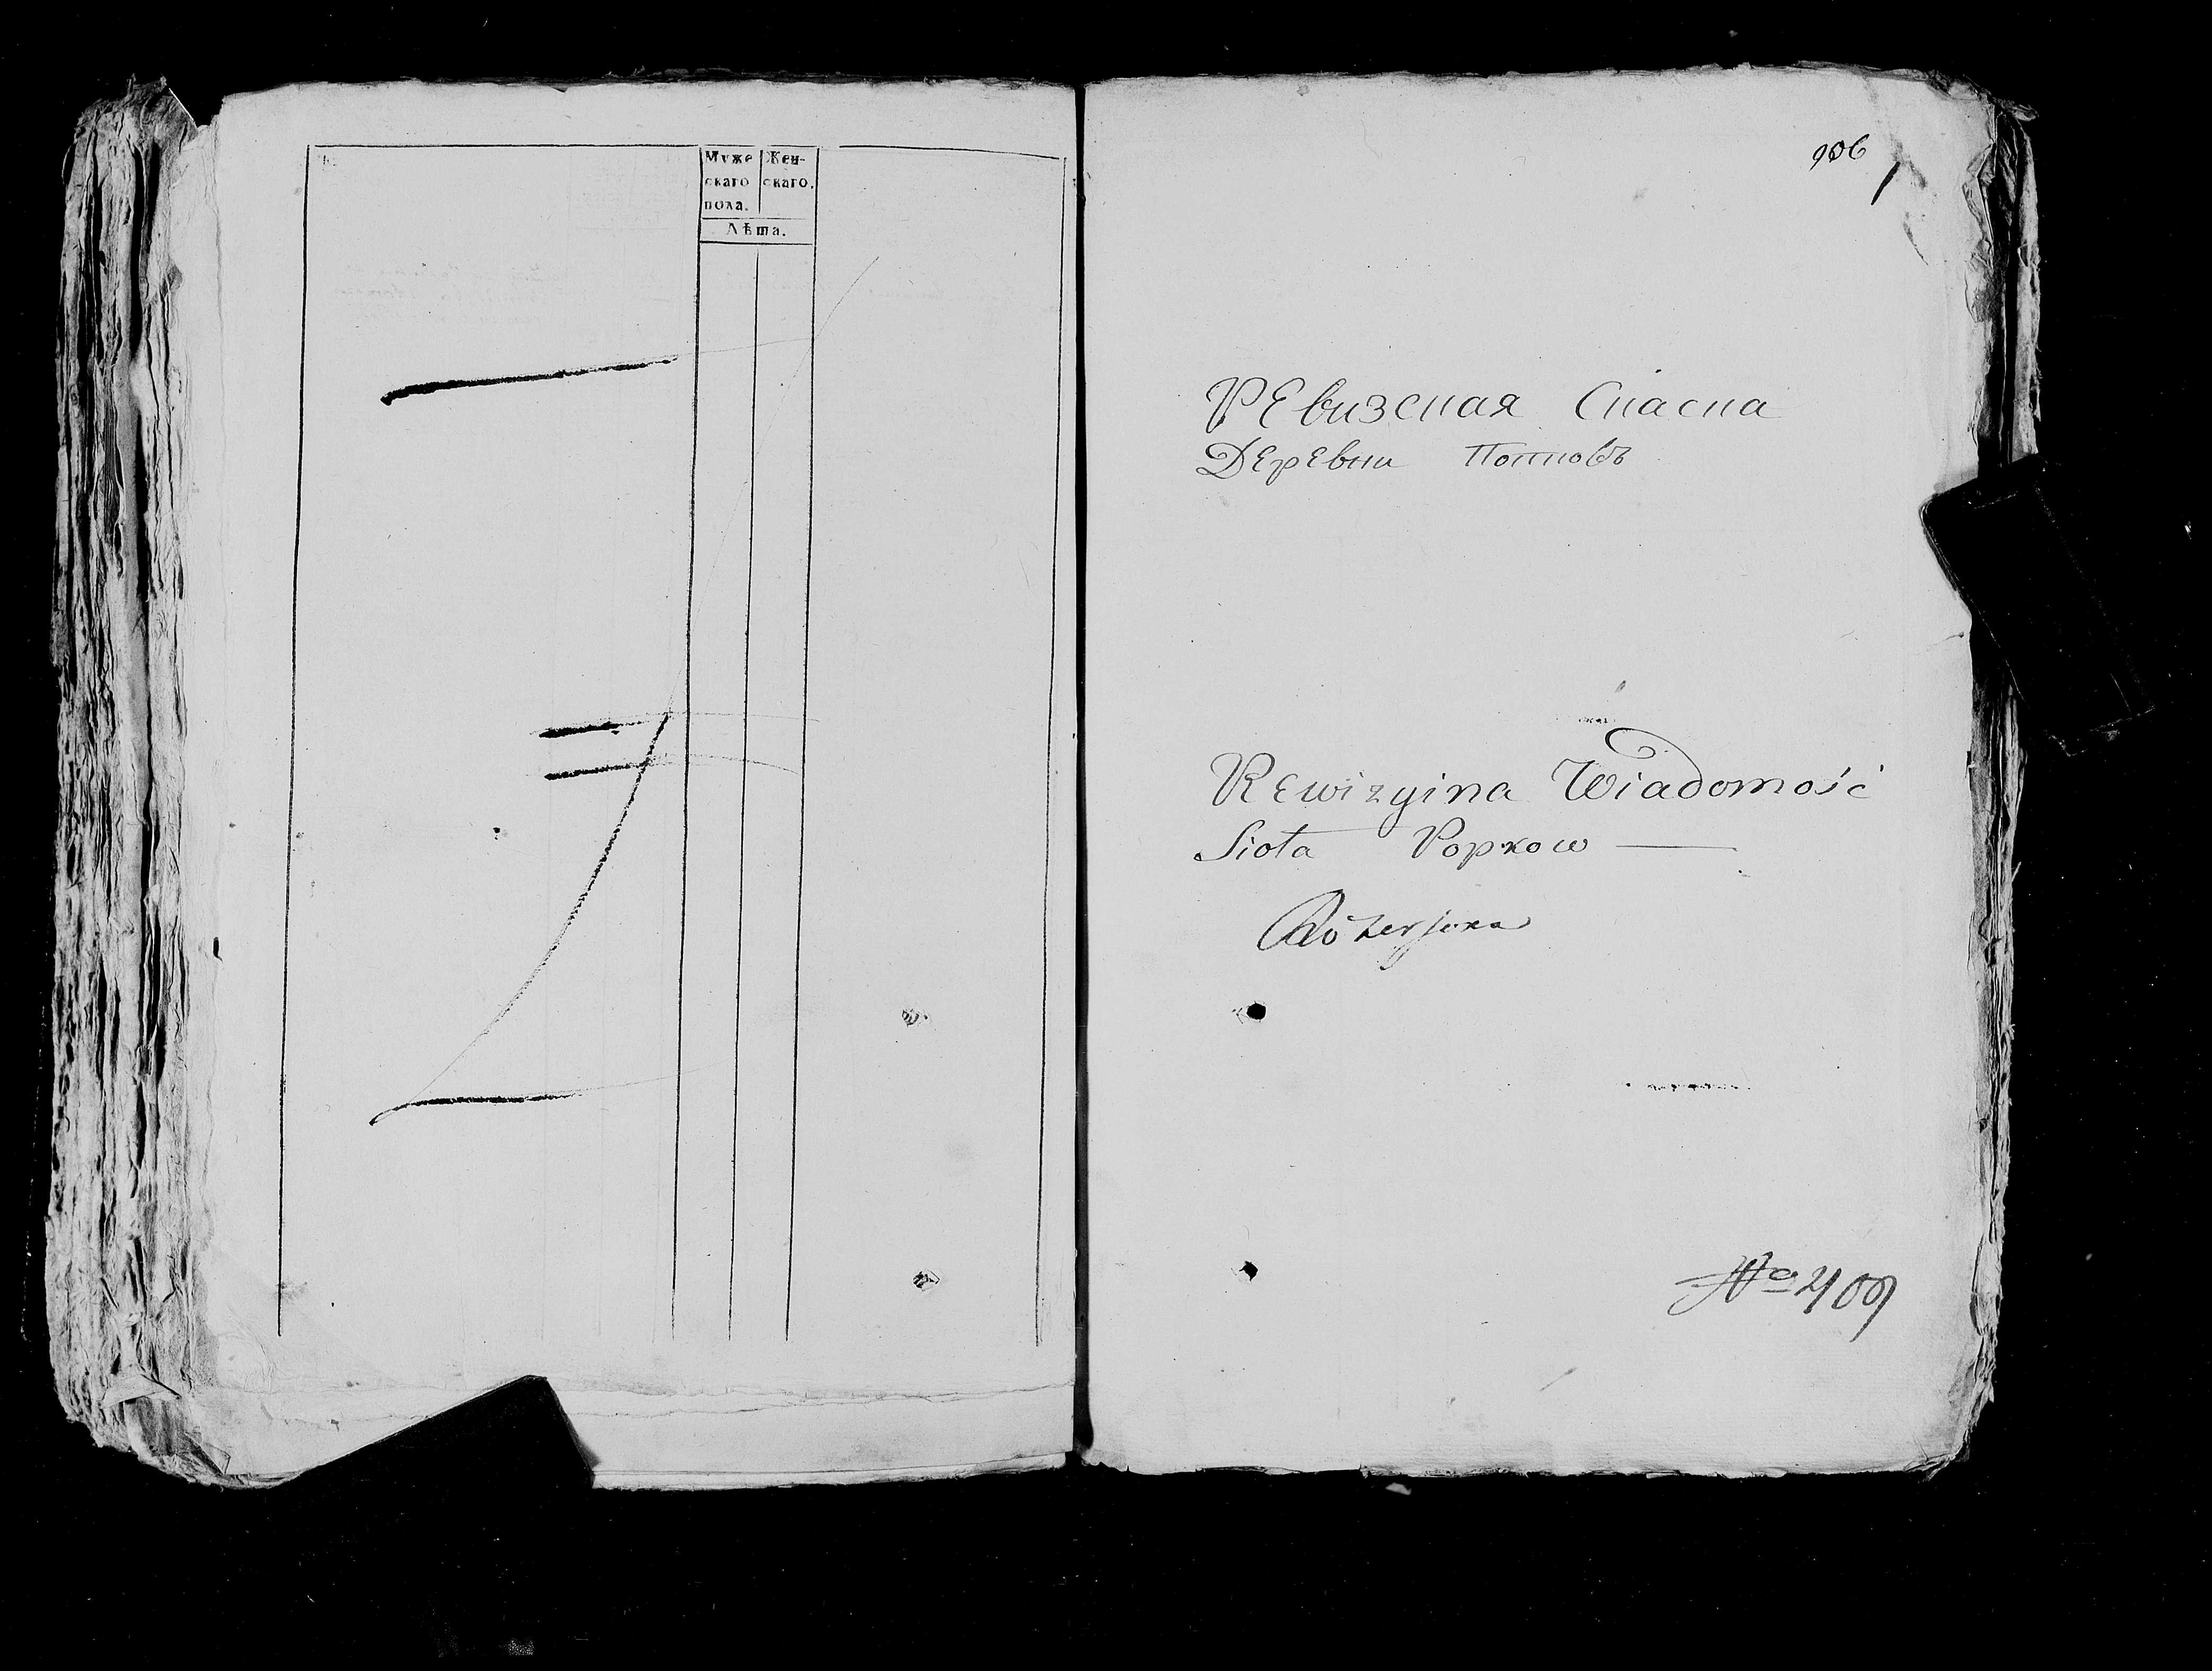 Муже
скаго
пола.
Жен-
скаго.
Лѣта.
906
Ревизская Скаска
Деревни Попковъ
Rewizyina Wiadomość
Sioła Popkow
№ 409